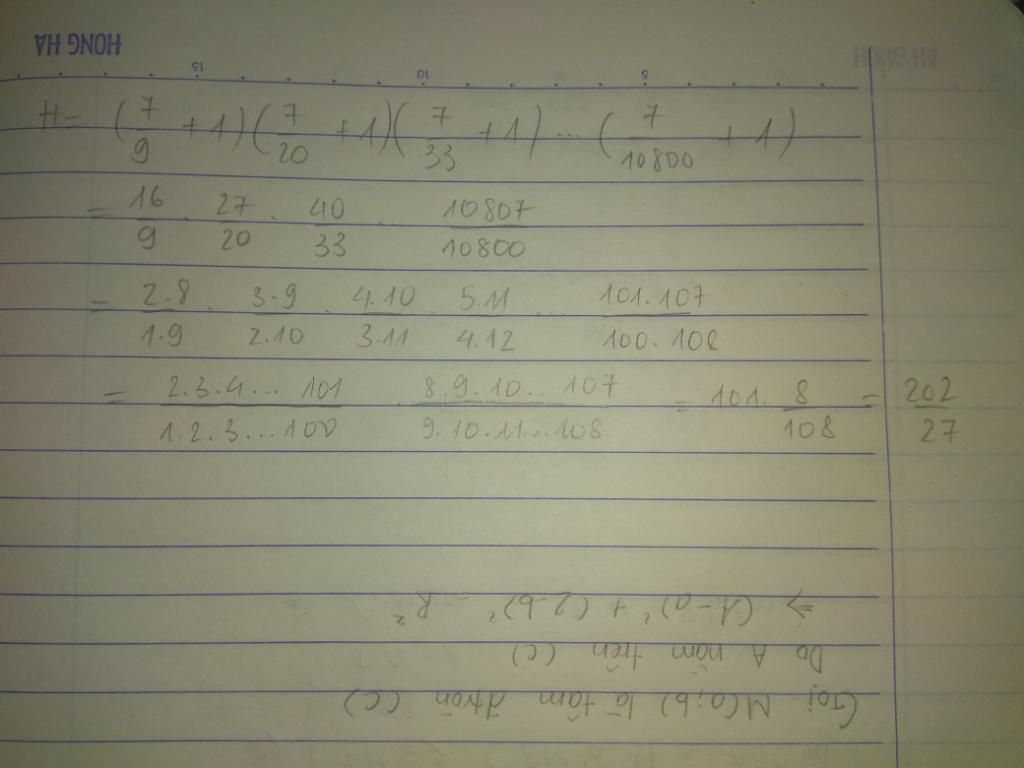 HONG HA
15 10 5
H = (7/9 + 1)(7/20 + 1)(7/33 + 1) ... (7/10800 + 1)
= 16/9 . 27/20 . 40/33 ... 10807/10800
= 2.8/1.9 . 3.9/2.10 . 4.10/3.11 . 5.11/4.12 ... 101.107/100.108
= 2.3.4... 101/1.2.3...100 . 8.9.10... 107/9.10.11...108 = 101. 8/108 = 202/27
Gọi M(a;b) là tâm đtròn (C)
Do A nằm trên (C)
⇒ (1-a)² + (2-b)² = R²